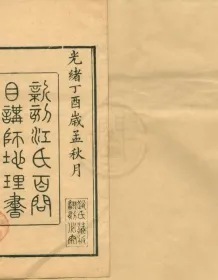 光緒丁酉歲孟秋月
新刻江氏百問
目講師地理書